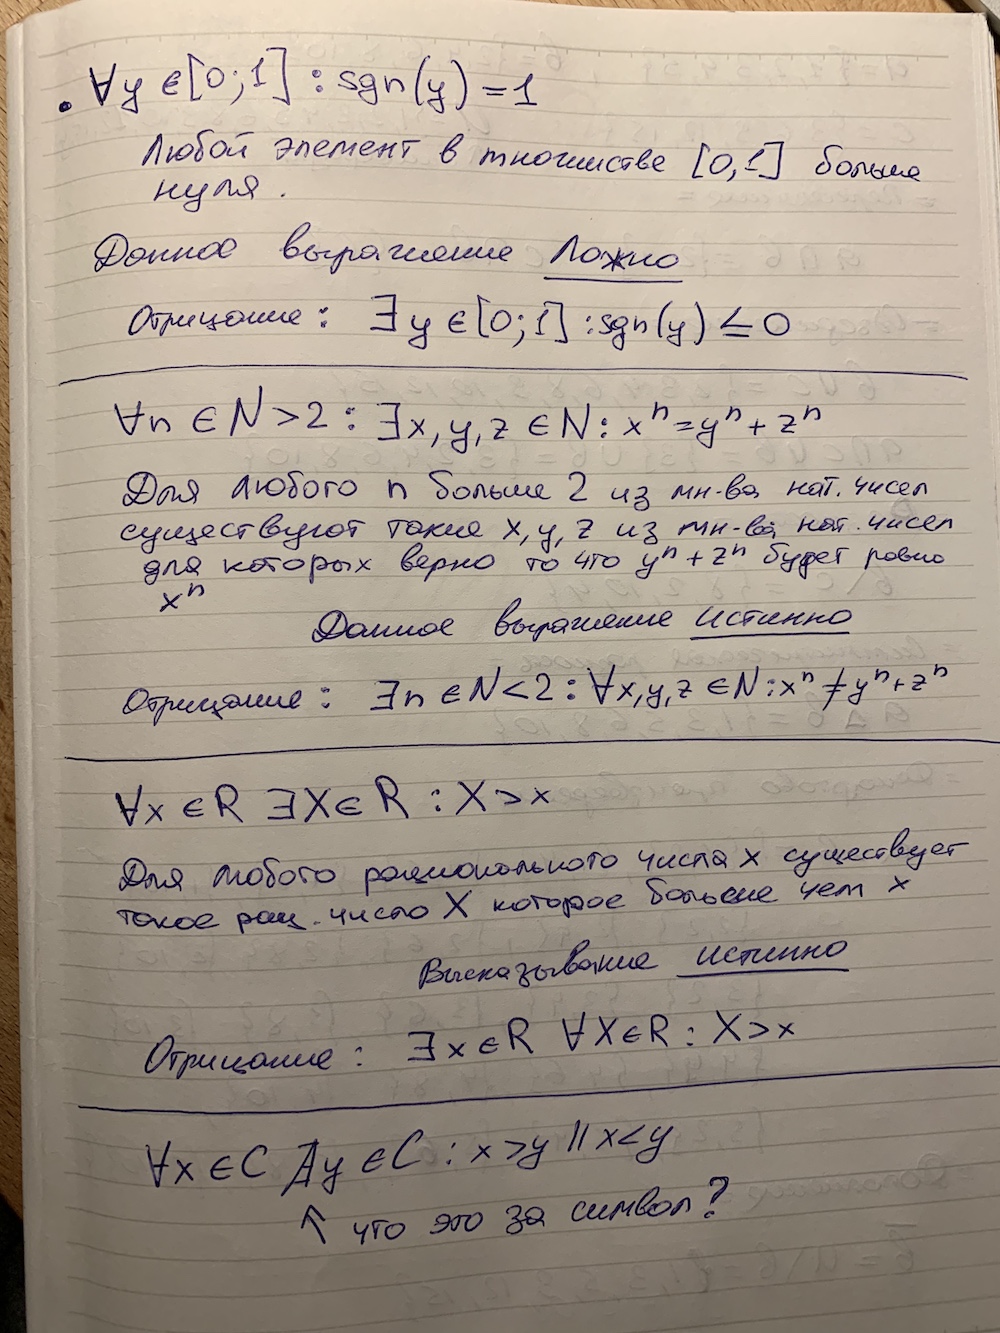 ∀y ∈ [0;1] : sgn(y) = 1
Любой элемент в множистве [0,1] больше
нуля.
Данное выражение Ложно
Отрицание: ∃y ∈ [0;1] : sgn(y) ≤ 0
∀n ∈ N > 2 : ∃x, y, z ∈ N : xⁿ = yⁿ + zⁿ
Для любого n больше 2 из мн-ва нат. чисел
существуют такие x, y, z из мн-ва нат. чисел
для которых верно то что yⁿ + zⁿ будет равно
xⁿ
Данное выражение истинно
Отрицание: ∃n ∈ N < 2 : ∀x, y, z ∈ N : xⁿ ≠ yⁿ + zⁿ
∀x ∈ R ∃X ∈ R : X > x
Для любого рационального числа x существует
такое рац. число X которое больше чем x
Высказывание истинно
Отрицание: ∃x ∈ R ∀X ∈ R : X > x
∀x ∈ C ∄y ∈ C : x > y || x < y
↑ что это за символ?